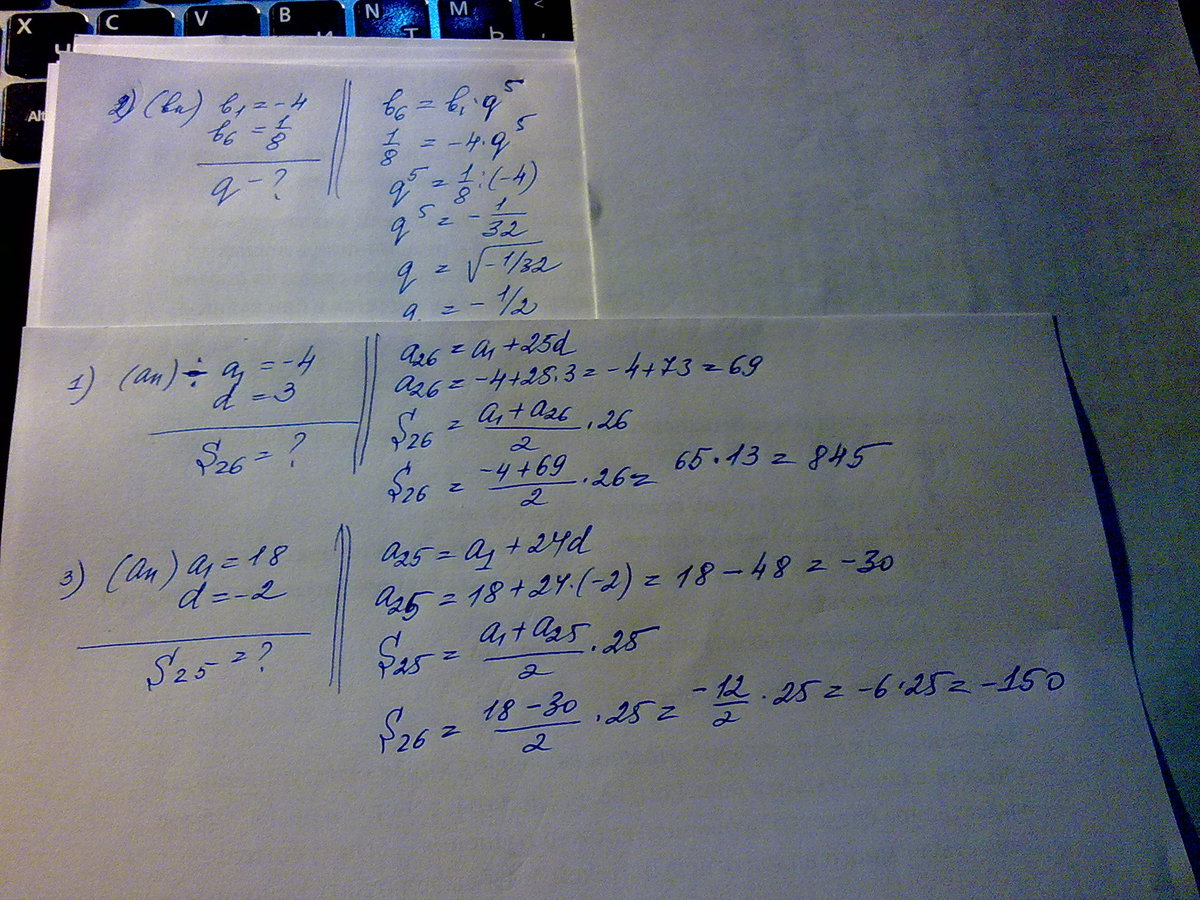 X C V B N M <
Ч И Т Ь
Alt
2) (bn) b1 = -4
b6 = 1/8
q - ?
b6 = b1 · q^5
1/8 = -4 · q^5
q^5 = 1/8 : (-4)
q^5 = - 1/32
q = √-1/32
q = - 1/2
1) (an) ÷ a1 = -4
d = 3
S26 = ?
a26 = a1 + 25d
a26 = -4 + 25·3 = -4 + 73 = 69
S26 = (a1 + a26)/2 · 26
S26 = (-4 + 69)/2 · 26 = 65 · 13 = 845
3) (an) a1 = 18
d = -2
S25 = ?
a25 = a1 + 24d
a25 = 18 + 24·(-2) = 18 - 48 = -30
S25 = (a1 + a25)/2 · 25
S26 = (18 - 30)/2 · 25 = -12/2 · 25 = -6 · 25 = -150